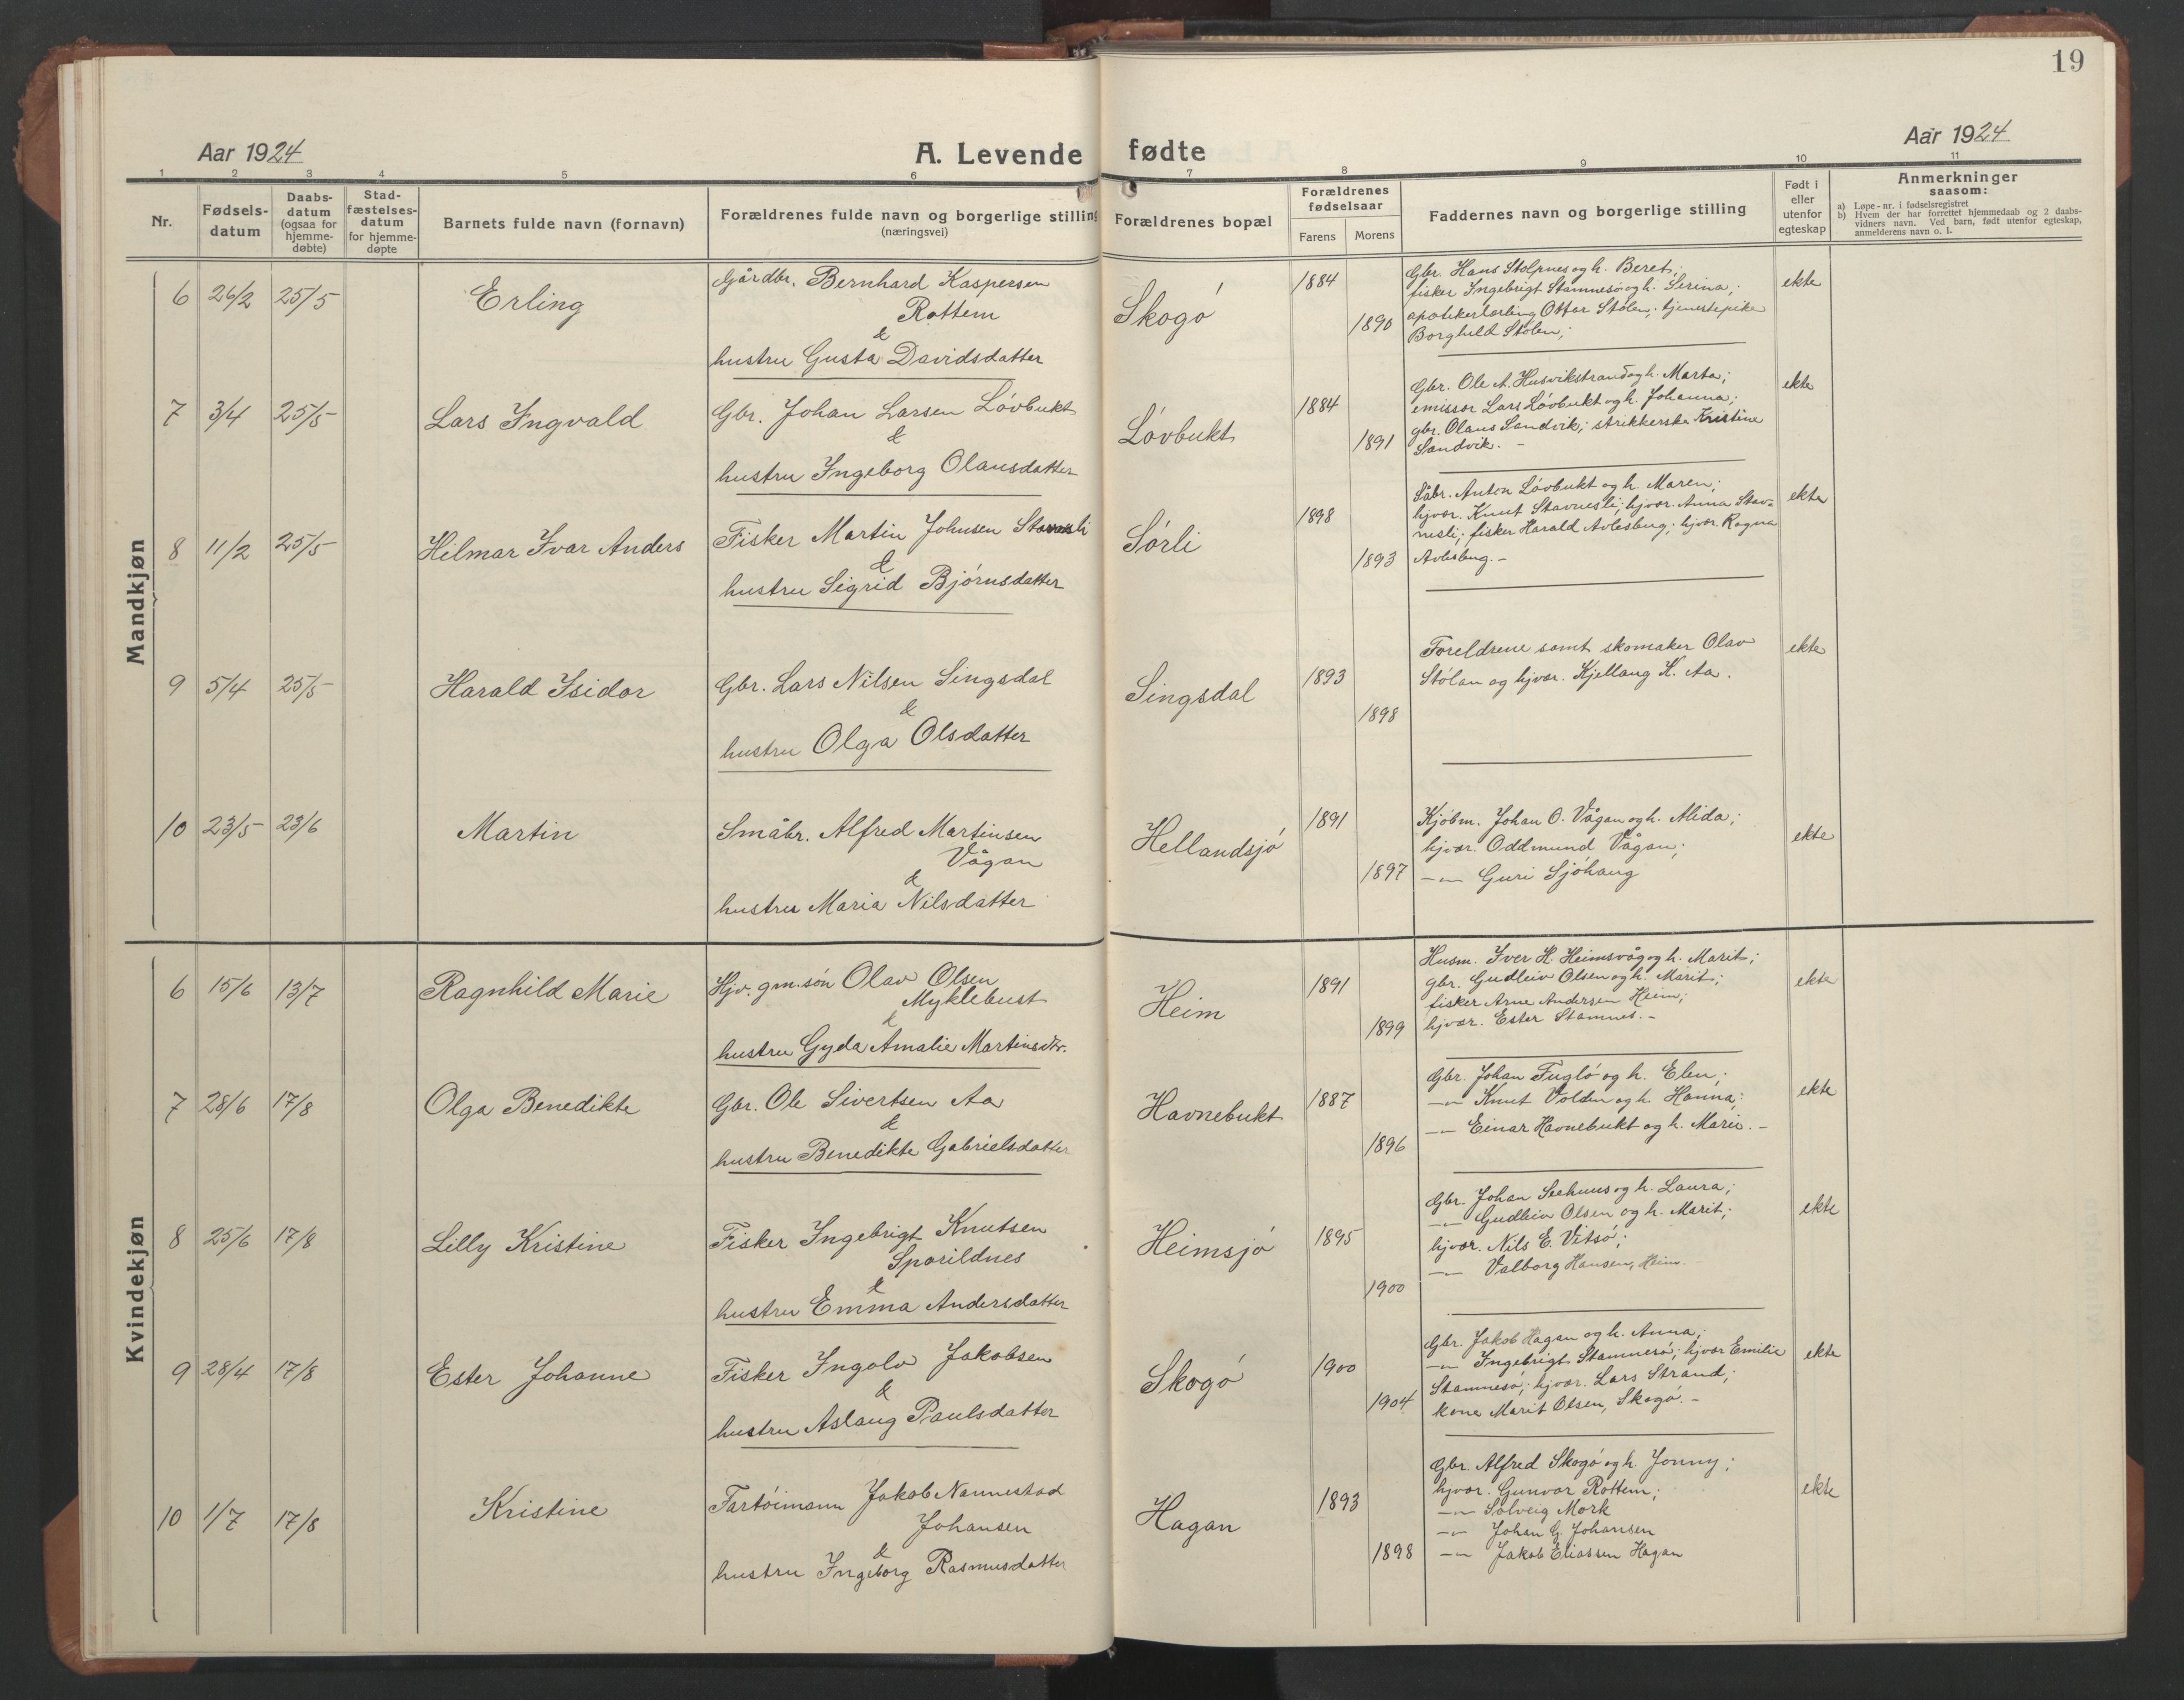 19
Aar 1924
A. Levende fødte
Aar 1924
1 2 3 4 5 6 7 8 9 10 11
Nr.
Fødsels-
datum
Daabs-
datum
(ogsaa for
hjemme-
døbte)
Stad-
fæstelses-
datum
for hjemme-
døpte
Barnets fulde navn (fornavn)
Forældrenes fulde navn og borgerlige stilling
(næringsvei)
Forældrenes bopæl
Forældrenes
fødselsaar
Farens Morens
Faddernes navn og borgerlige stilling
Født i
eller
utenfor
egteskap
Anmerkninger
saasom:
a) Løpe-nr. i fødselsregistret
b) Hvem der har forrettet hjemmedaab og 2 daabs-
vidners navn. Ved barn, født utenfor egteskap,
anmelderens navn o. l.
Mandkjøn
6 26/2 25/5 Erling
Gårdbr. Bernhard Kaspersen
Rottem
&
hustru Gusta Davidsdatter
Skogó
1884
1890
Gbr. Hans Stolpnes og h. Beret;
fisker Ingebrigt Stamnesó og h. Serina;
apotekerlærling Ottar Stólen; tjenestepike
Borghild Stólen;
ekte
7 3/4 25/5 Lars Ingvald
Gbr. Johan Larsen Lóvbukt
&
hustru Ingeborg Olausdatter
Lóvbukt
1884
1891
Gbr. Ole A. Husvikstrand og h. Marta;
emissør Lars Lóvbukt og h. Johanna;
gbr. Olaus Sandvik; strikkerske Kristine
Sandvik. -
ekte
8 11/2 25/5 Hilmar Ivar Anders
Fisker Martin Johnsen Stavnesli
&
hustru Sigrid Bjórnsdatter
Sórli
1898
1893
Såbr. Anton Lóvbukt og h. Maren;
hjvær. Knut Stavnesli; hjvær. Anna Stav-
nesli; fisker Harald Avlesbug; hjvær. Ragna
Avlesbug. -
ekte
9 5/4 25/5 Harald Isidor
Gbr. Lars Nilsen Singsdal
&
hustru Olga Olsdatter
Singsdal
1893
1898
Foreldrene samt skomaker Olav
Stólan og hjvær. Kjellaug K. Aa.
ekte
10 23/5 23/6 Martin
Småbr. Alfred Martinsen
Vågan
&
hustru Maria Nilsdatter
Hellandsjó
1891
1897
Kjóbm. Johan O. Vågan og h. Alida;
hjvær. Oddmund Vågan;
-"- Guri Sjóhaug
ekte
Kvindekjøn
6 15/6 13/7 Ragnhild Marie
Hjv. gm.són Olav Olsen
Myklebust
&
hustru Gyda Amalie Martinsdtr.
Heim
1891
1899
Husm. Iver H. Heimsvåg og h. Marit;
gbr. Gudleiv Olsen og h. Marit;
fisker Arne Andersen Heim;
hjvær. Ester Stamnes. -
ekte
7 28/6 17/8 Olga Benedikte
Gbr. Ole Sivertsen Aa
&
hustru Benedikte Gabrielsdatter
Havnebukt
1887
1896
Gbr. Johan Fugló og h. Elen;
-"- Knut Volden og h. Hanna;
-"- Einar Havnebukt og h. Marie. -
ekte
8 25/6 17/8 Lilly Kristine
Fisker Ingebrigt Knutsen
Sporildnes
&
hustru Emma Andersdatter
Heimsjó
1895
1900
Gbr. Johan Seehuus og h. Laura;
-"- Gudleiv Olsen og h. Marit;
hjvær. Nils E. Vitsó;
-"- Valborg Hansen, Heim.
ekte
9 28/4 17/8 Ester Johanne
Fisker Ingolv Jakobsen
&
hustru Aslaug Paulsdatter
Skogó
1900
1904
Gbr. Jakob Hagan og h. Anna;
-"- Ingebrigt Stamnesó; hjvær Emilie
Stamnesó; hjvær. Lars Strand;
kone Marit Olsen, Skogó. -
ekte
10 1/7 17/8 Kristine
Fartóimann Jakob Nannestad
Johansen
&
hustru Ingeborg Rasmusdatter
Hagan
1893
1898
Gbr. Alfred Skogó og h. Jonny;
hjvær. Gunvor Rottem;
-"- Solveig Mork
-"- Johan G. Johansen
-"- Jakob Eliassen Hagan
ekte